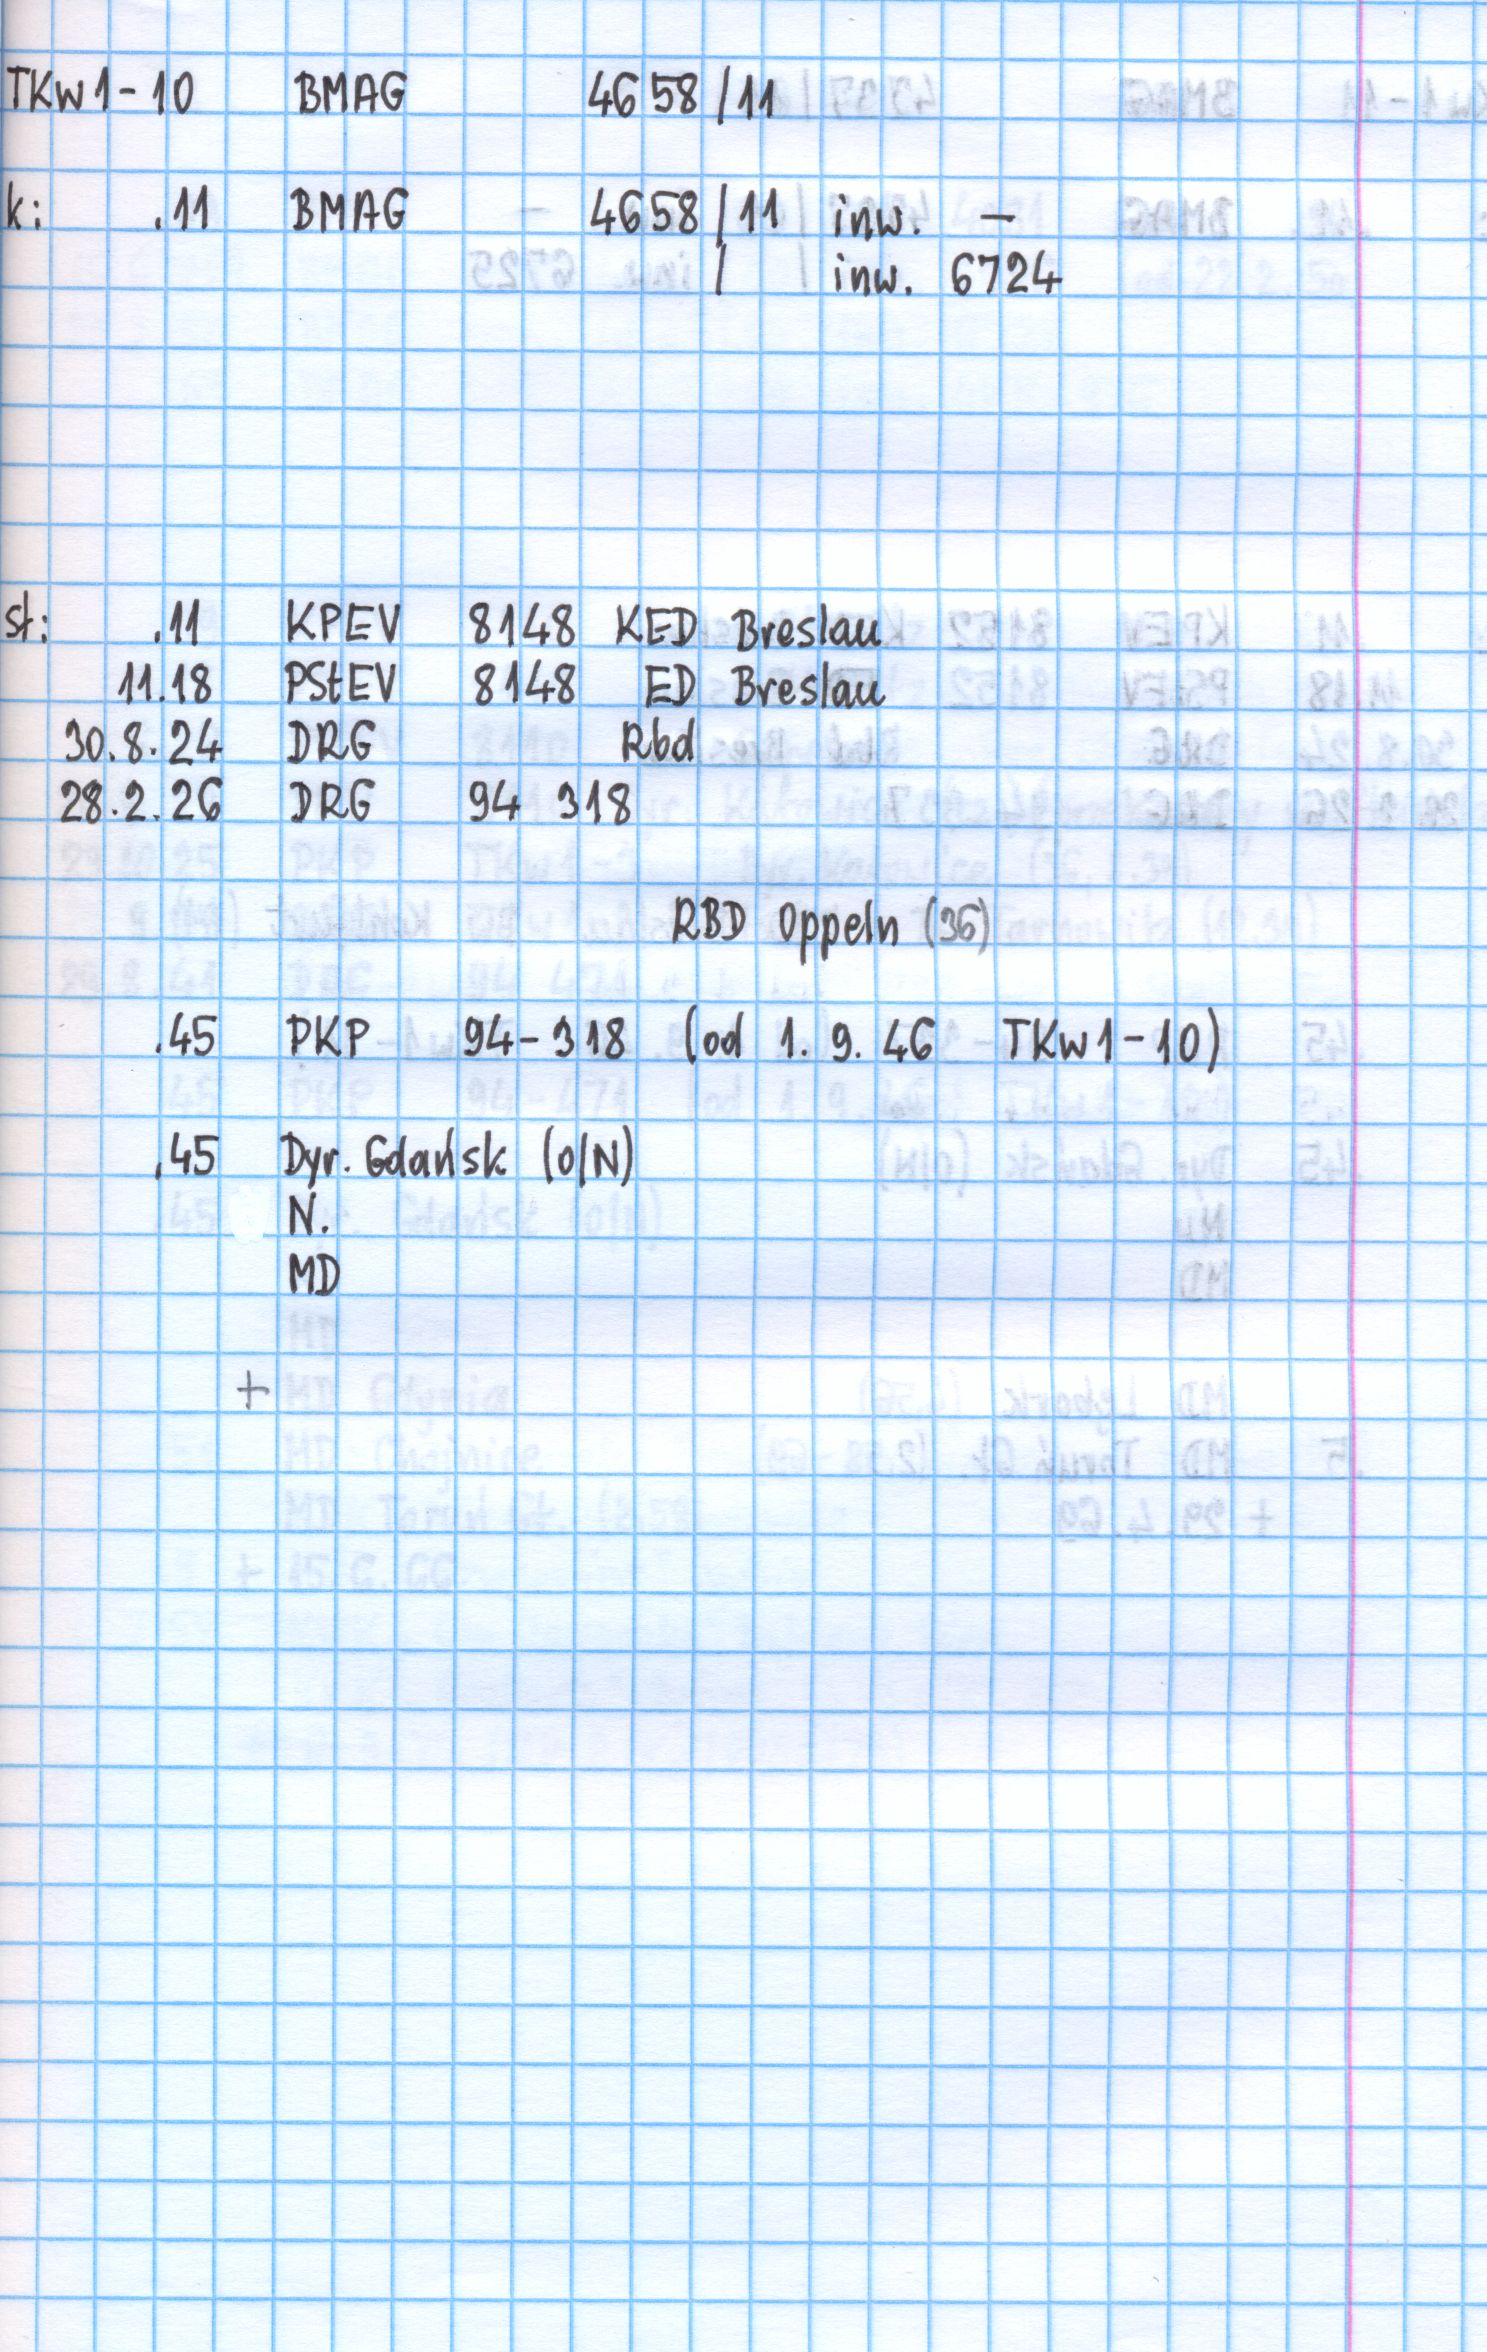 TKw1-10 BMAG 4658/11
k: .11 BMAG 4658/11 inw. –
/ inw. 6724
st: .11 KPEV 8148 KED Breslau
11.18 PStEV 8148 ED Breslau
30.8.24 DRG Rbd
28.2.26 DRG 94 318
RBD Oppeln (36)
.45 PKP 94-318 (od 1.9.46 TKw1-10)
.45 Dyr. Gdańsk (O/N)
N.
MD
+